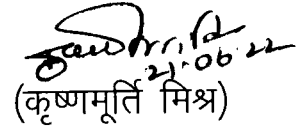 21.06.22
(कृष्णमूर्ति मिश्र)